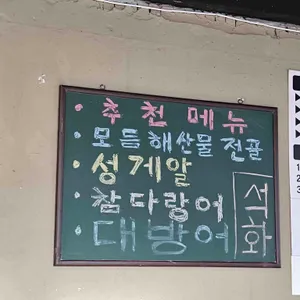 · 추천 메뉴
· 모듬해산물 전골
· 성게알
· 참다랑어
· 대방어
석화
1
2
3